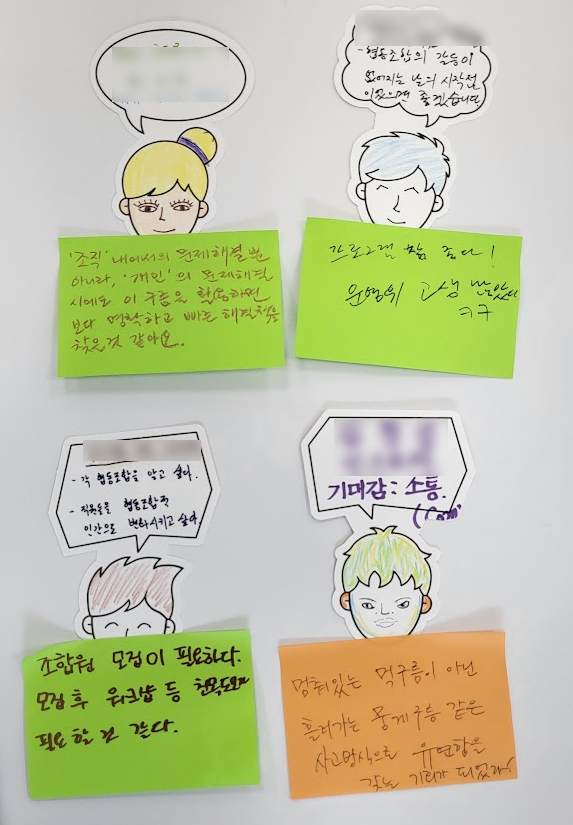 -협동조합의 갈등이
없어지는 날의 시작점
이었으면 좋겠습니다
'조직' 내에서의 문제해결 뿐
아니라, '개인'의 문제해결
시에도 이 구름을 활용하면
보다 명확하고 빠른 해결책을
찾을것 같아요.
프로그램 참 좋다!
운영위 고생 많았다
ㅋㅋ
- 각 협동조합을 알고 싶다.
- 직원들을 협동조합적
인간으로 변화시키고 싶다.
조합원 모집이 필요하다.
모집 후 워크샵 등 친목도모가
필요할 것 같다.
기대감: 소통.
(Com
멈춰있는 먹구름이 아닌
흘러가는 뭉게구름 같은
사고방식으로 유연함을
갖는 기회가 되었다!